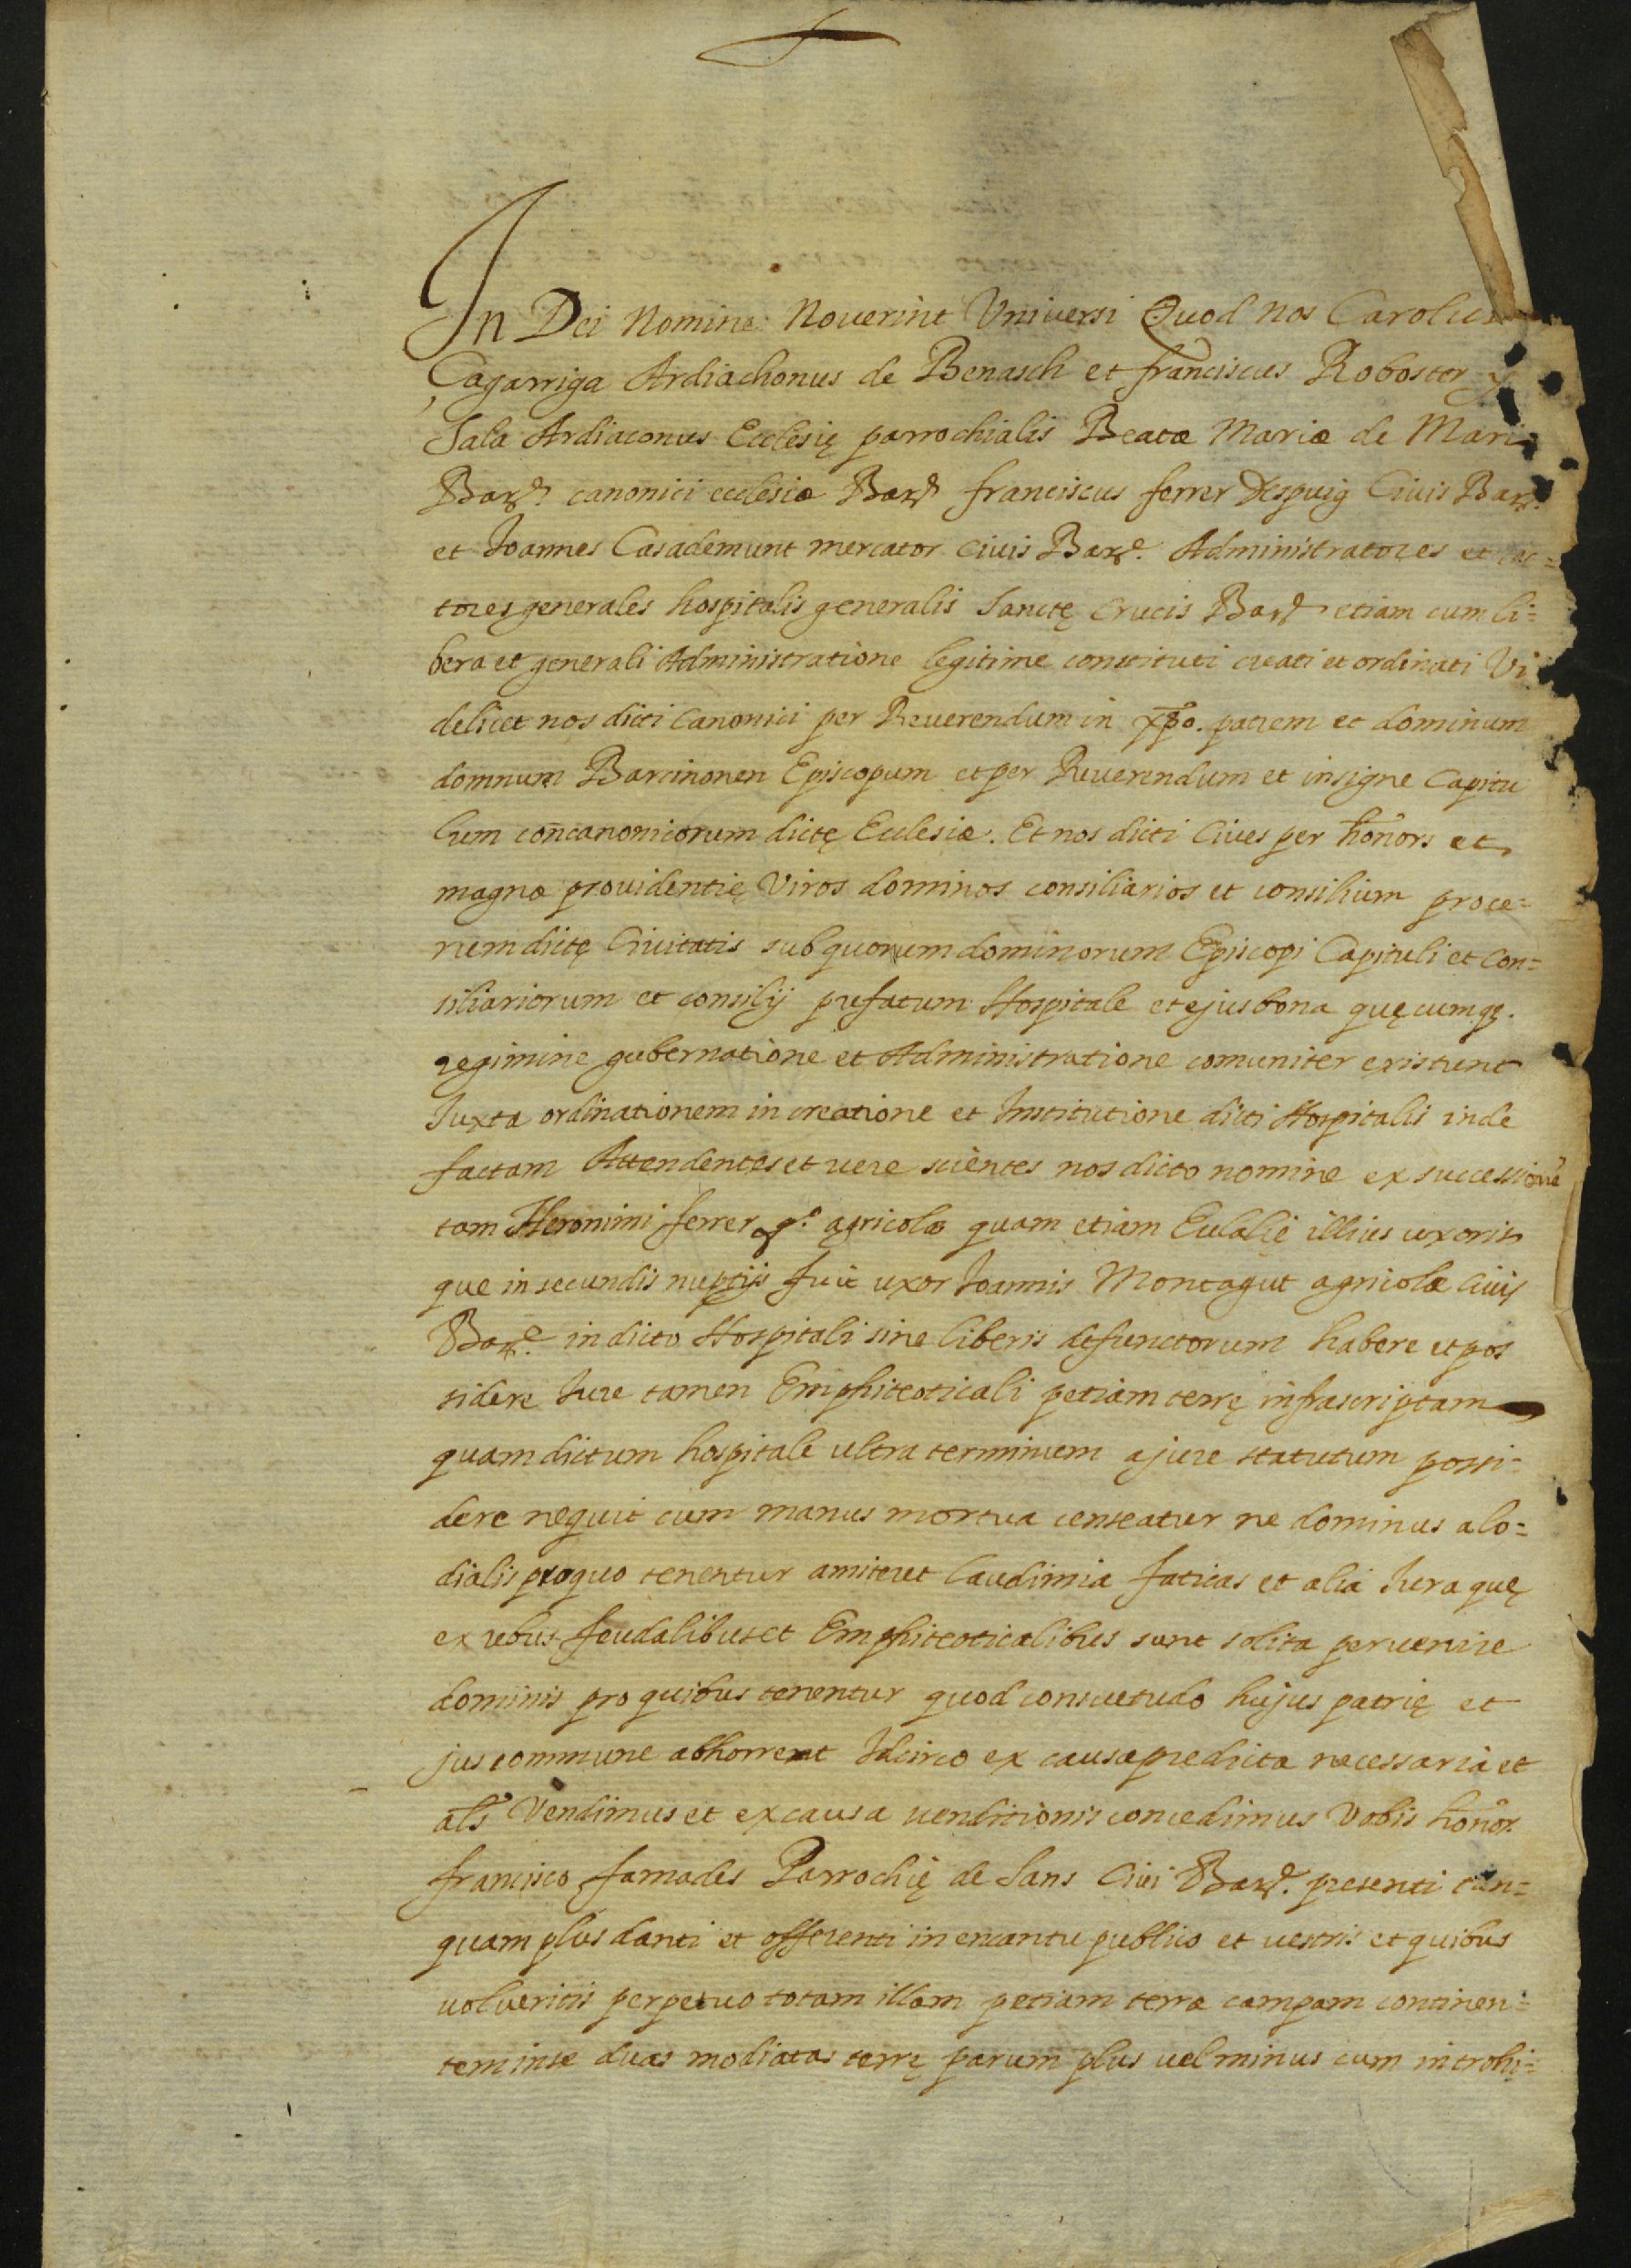 In Dei Nomine Noverint Universi Quod nos Carolus
Çagarriga Ardiachonus de Benasch et franciscus Roboster y
Sala Ardiaconus Ecclesię parrochialis Beatæ Mariæ de Mari
Barñ. canonici ecclesiæ Barñ franciscus ferrer Despuig Civis Barñ.
et Joannes Casademunt mercator civis Barñ. Administratores et ac=
tores generales hospitalis generalis Sanctę Crucis Barñ etiam cum li=
bera et generali Administratione legitime constituti creati et ordinati Vi
delicet nos dicti Canonici per Reverendum in xp̃o. patrem et dominum
domnum Barcinonen Episcopum et per Reverendum et insigne Capitu
lum concanonicorum dictę Ecclesiæ. Et nos dicti Cives per honors et
magnæ providentię Viros dominos consiliarios et consilium proce=
rum dictę Civitatis sub quorum dominorum Episcopi Capituli et Con=
siliariorum et consilij prefatum Hospitale et ejus bona quęcumq.
regimine gubernatione et Administratione comuniter existunt
Juxta ordinationem in creatione et Institutione dicti Hospitalis inde
factam Attendentes et vere scientes nos dicto nomine ex successione
tam Heronimi ferrer qº. agricolæ quam etiam Eulalię illius uxoris
que in secundis nuptijs fuit uxor Joannis Montagut agricolæ civis
Barñ. in dicto Hospitali sine liberis defunctorum habere et pos
sidere Jure tamen Emphiteoticali petiam terrę infrascriptam
quam dictum hospitale ultra terminum a jure statutum possi=
dere nequit cum manus mortua censeatur ne dominus alo=
dialis pro quo tenentur amiteret laudimia faticas et alia Jura quę
ex rebus feudalibus et Emphiteoticalibus sunt solita pervenire
dominis pro quibus tenentur quod consuetudo hujus patrię et
jus commune abhorrent Idcirco ex causa predicta necessaria et
als Vendimus et ex causa venditionis concedimus Vobis honor.
francisco famades Parrochię de Sans Civi Barñ. presenti tan=
quam plus danti et offerenti in encantu publico et vestris et quibus
volueritis perpetuo totam illam petiam terræ campam continen=
tem in se duas modiatas terrę parum plus vel minus cum introhi=